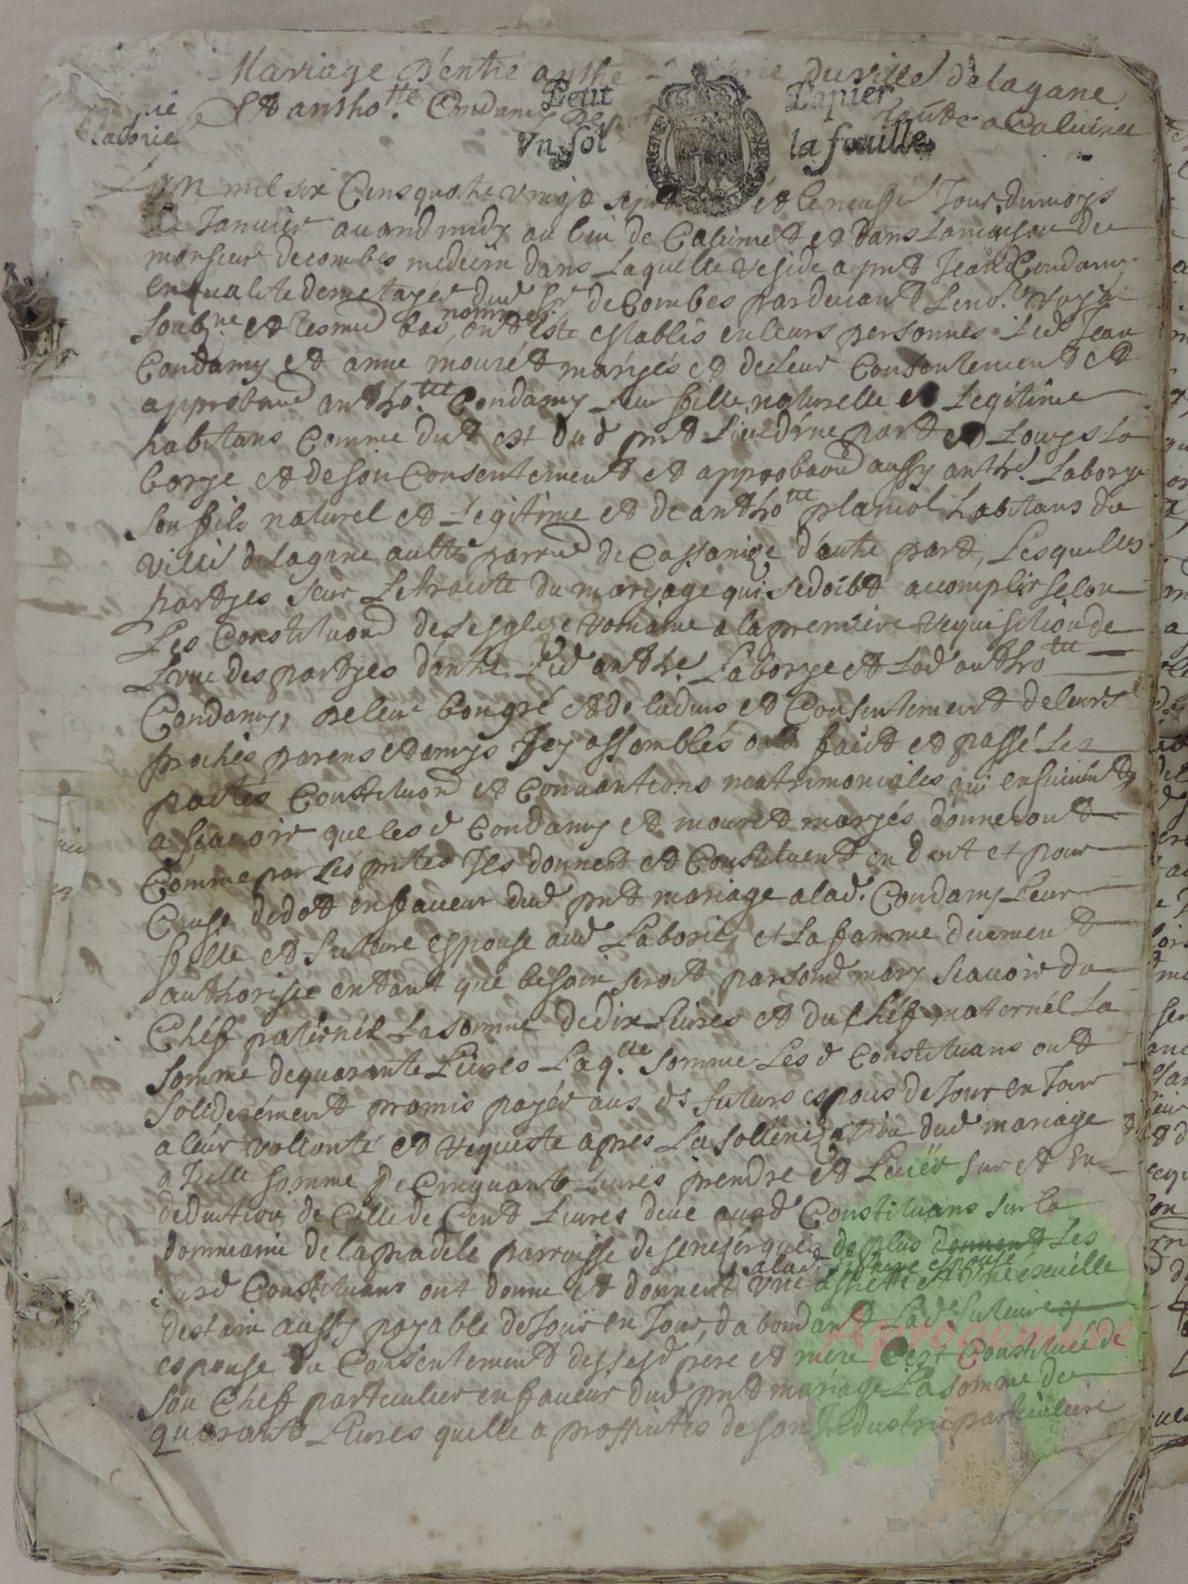 Mariage d'entre anthe duville de lagane
Et antho.tte Condamy
Petit Papier
Vn sol la feuille
laborie
L'an mil six Cens quatre vingt sept et le neufie Jour du moys
de Janvier avand midy au lieu de Calvinet et dans la maison de
monsieur decombes medecin dans Laquelle reside a pnt Jean Condamy
en qualite de metayer dud sr decombes pardevant Le no.re royal
soubne et tesmd bas nommes ont este establis en leurs personnes Led Jean
Condamy et anne mouret mariés et de leur Consentement et
approband antho.tte Condamy leur fille naturelle et Legitime
habitans Comme dict est dud pnt lieu d'une part et Louys la
borye et de son Consentement et approband aussy anthe Laborye
son fils naturel et Legitime et de antho.tte planiol habitans du
villé de lagane aultre parrue de Cassanioze d'autre part, Lesquelles
partyes sur Le traicte du maryage qui se doibt accomplir selon
Les Constituons de l'esglize romaine a la premiere requisition de
L'vne des partyes d'autre Led anthe. Laborye et Lad antho.tte
Condamy, de leur bon gré et de ladvis et Consentement de leurs
proches parens et amys Jcy assemblés ont faict et passé Les
pactes Constituons et Convantions matrimoniales qui ensuivent
a scavoir que lesd Condamy et mouret maryés donneront
Comme par Les pntes Jls donnent et Constituent en dot et pour
Cause de dot en faveur dud pnt mariage a lad. Condamy Leur
fille et future espouse aud Laborie, et La famme deuement
authorisée en tant que besoin seroit par sond mary scavoir du
Chéf paternél La somme de dix Livres et du chéf maternél La
somme de quarante Livres Laq.lle somme Lesd Constituans ont
soliderément promis payér aus ds futurs espous de Jour en Jour
a leur vollonté et requeste apres La sollenization dud mariage
a Jcelle somme de Cinquante Livres prendre et Levér sur et en
deduction de Celle de Cent Livres deue ausd Constituans sur la
dommaine de la pradele parroisse de senesergues de plus donnent Les
susd Constituans ont donne et donnent a lad future espouse vne assiette et vne escuélle
destain aussy payable de Jour en Jour, dabondant La d future
espouse du Consentement dessesd pere et mére C'est Constituée de
son Chef particulier en faveur dud pnt mariage La somme de
quarante Livres quelle a proffittés de son Jndustrie particuliere
Aprogemere